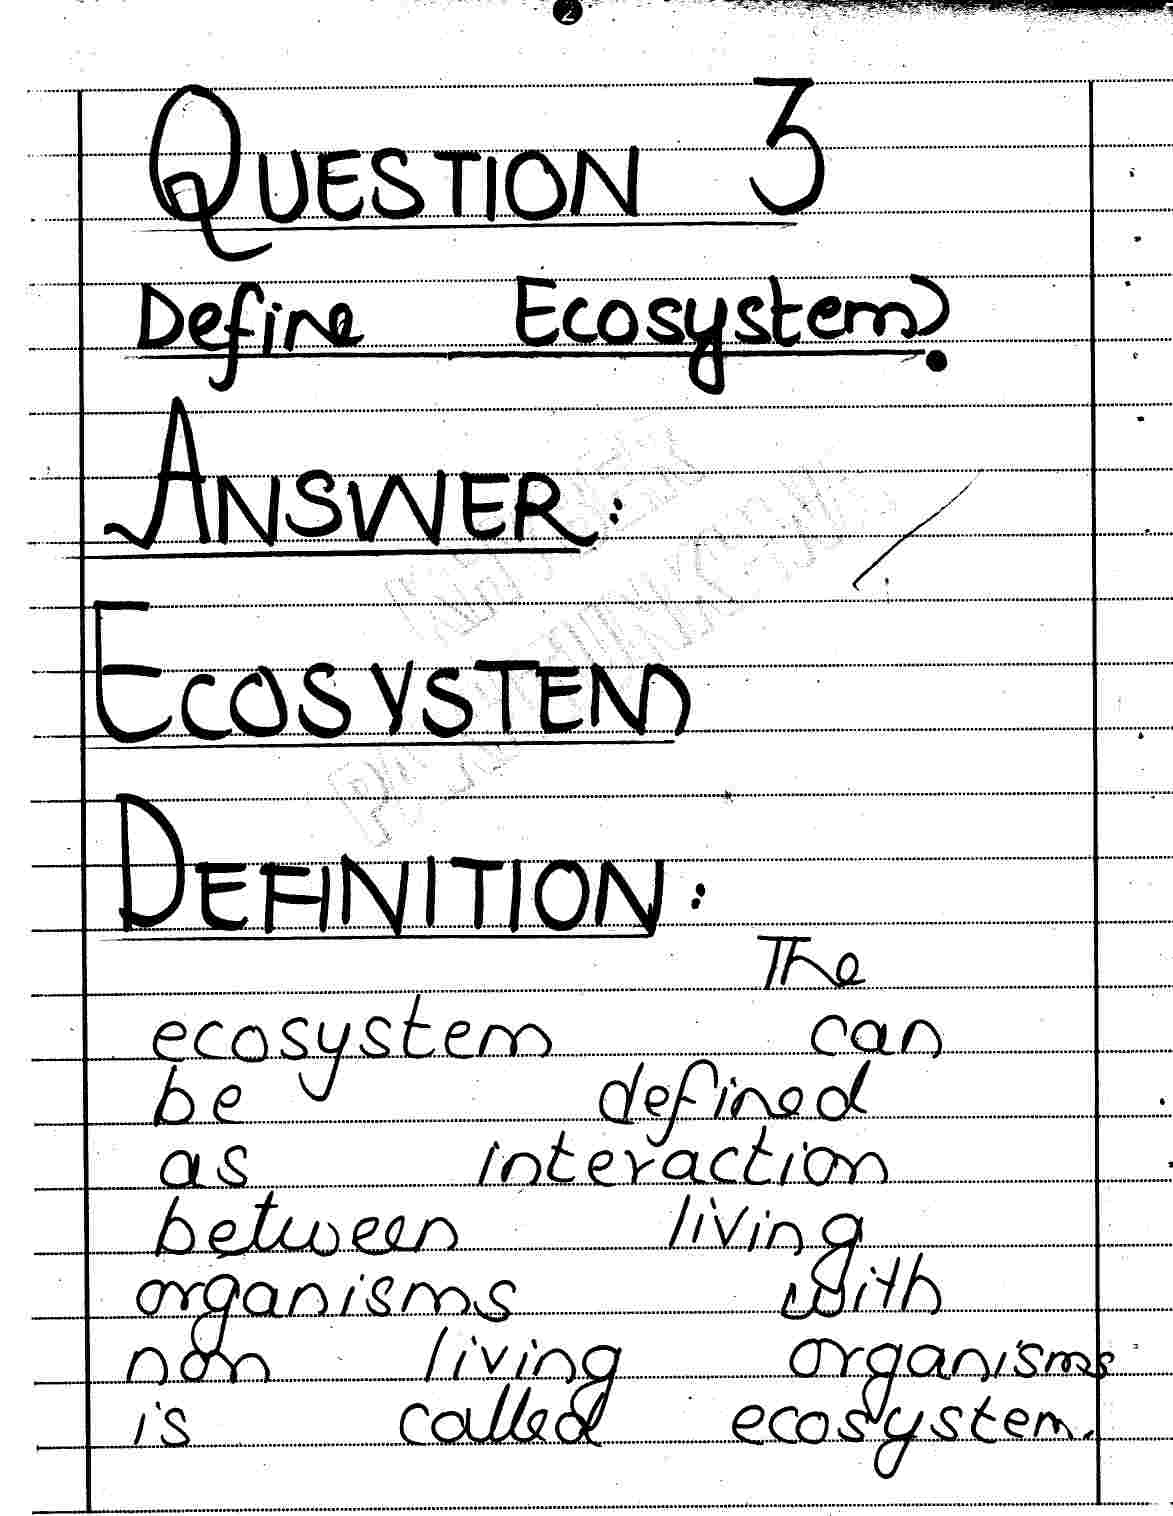 2
QUESTION 3
Define Ecosystem?
ANSWER:
ECOSYSTEM
DEFINITION:
The
ecosystem can
be defined
as interaction
between living
organisms with
non living organisms
is called ecosystem.